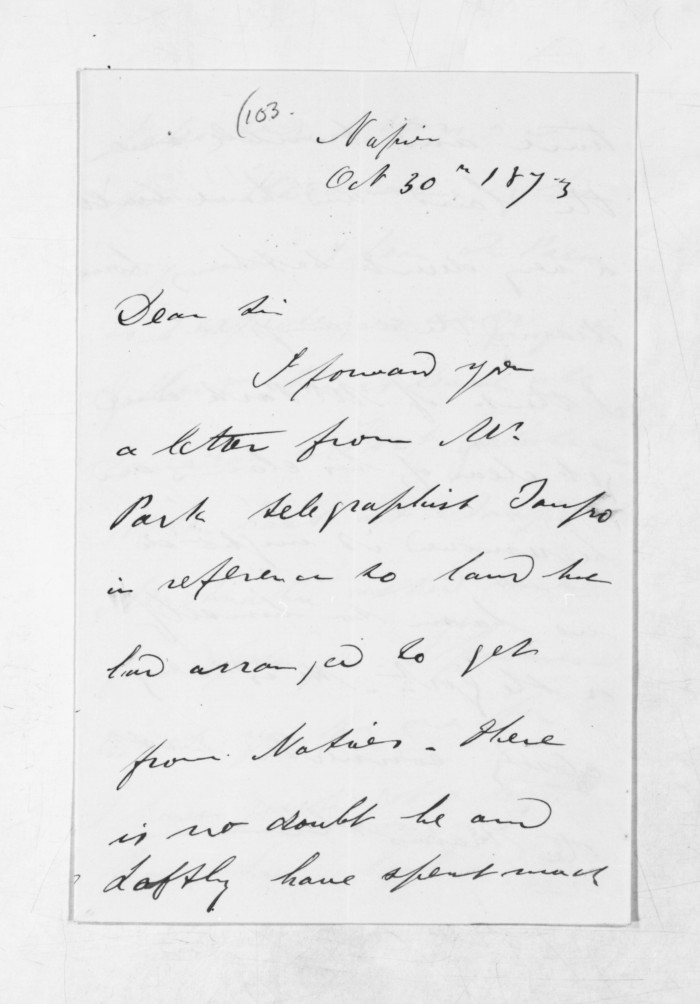 (103.
Napier
Oct 30th 1873
Dear Sir
I forward you
a letter from Mr.
Park telegraphist Taupo
in reference to land he
had arranged to get
from Natives - there
is no doubt he and
Loftley have spent much